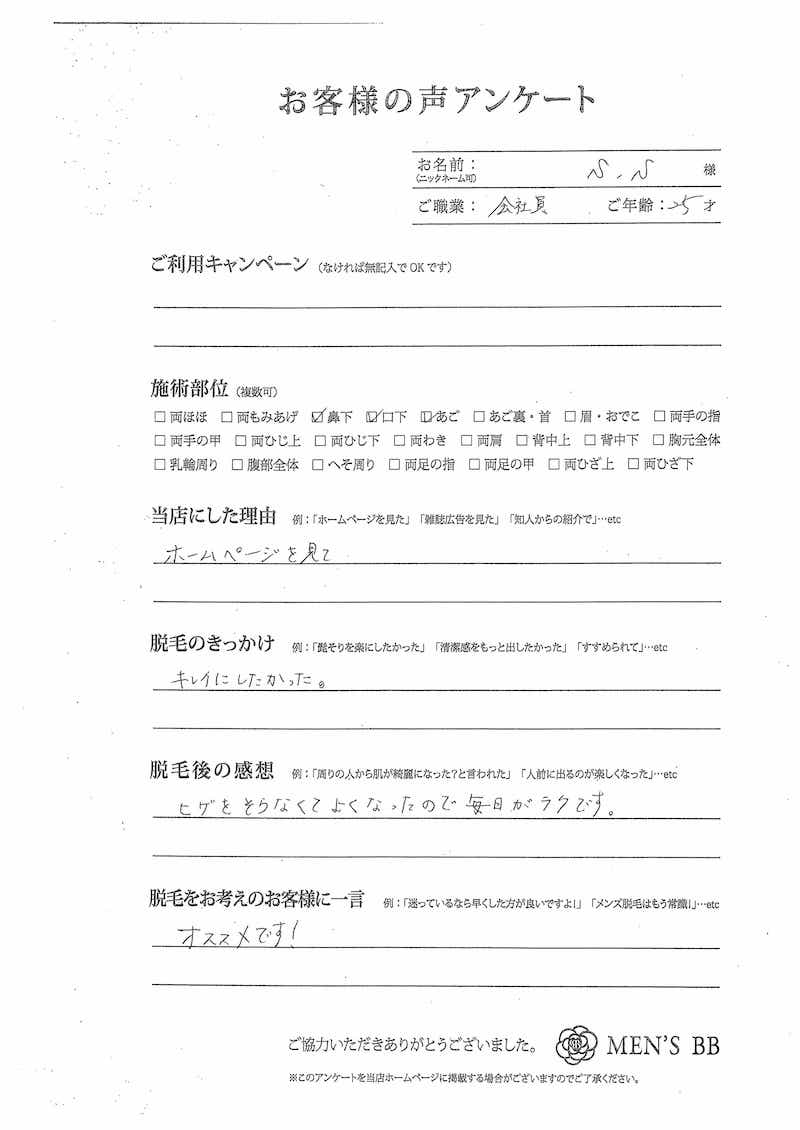 お客様の声アンケート
お名前： S.S 様
（ニックネーム可）
ご職業： 会社員 ご年齢：25才
ご利用キャンペーン （なければ無記入でOKです）
施術部位（複数可）
□両ほほ □両もみあげ ☑鼻下 ☑口下 ☑あご □あご裏・首 □眉・おでこ □両手の指
□両手の甲 □両ひじ上 □両ひじ下 □両わき □両肩 □背中上 □背中下 □胸元全体
□乳輪周り □腹部全体 □へそ周り □両足の指 □両足の甲 □両ひざ上 □両ひざ下
当店にした理由 例：「ホームページを見た」「雑誌広告を見た」「知人からの紹介で」…etc
ホームページを見て
脱毛のきっかけ 例：「髭そりを楽にしたかった」「清潔感をもっと出したかった」「すすめられて」…etc
キレイにしたかった。
脱毛後の感想 例：「周りの人から肌が綺麗になった？と言われた」「人前に出るのが楽しくなった」…etc
ヒゲをそらなくてよくなったので毎日がラクです。
脱毛をお考えのお客様に一言 例：「迷っているなら早くした方が良いですよ！」「メンズ脱毛はもう常識！」…etc
オススメです！
ご協力いただきありがとうございました。 MEN'S BB
※このアンケートを当店ホームページに掲載する場合がございますのでご了承ください。